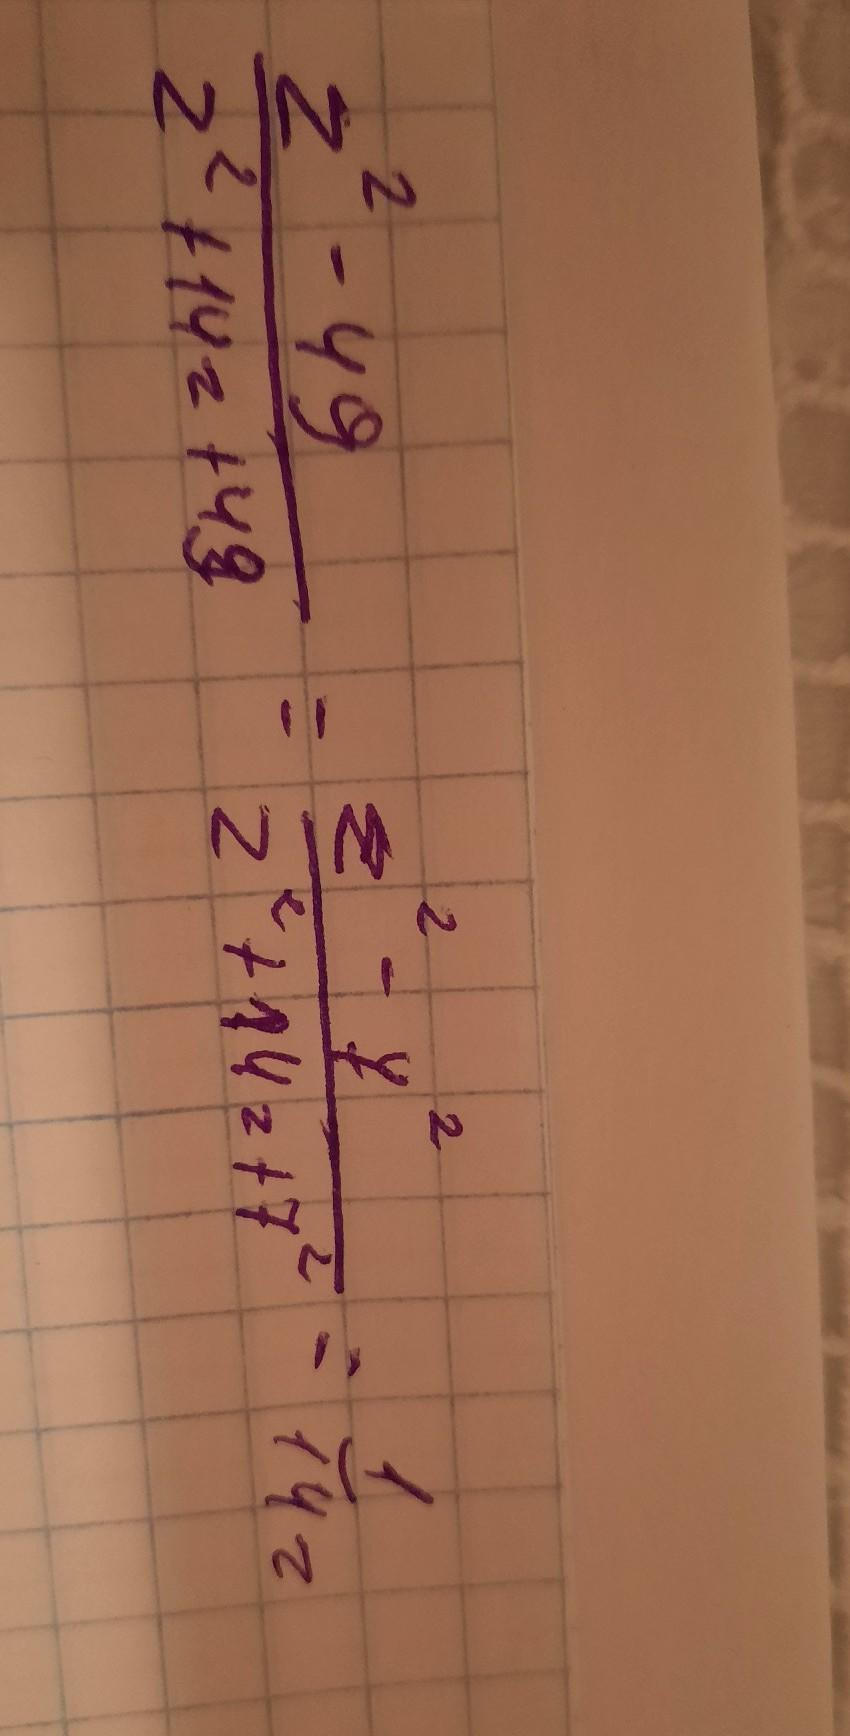 z² - 49 / z² + 14z + 49 = z² - 7² / z² + 14z + 7² = 1 / 14z